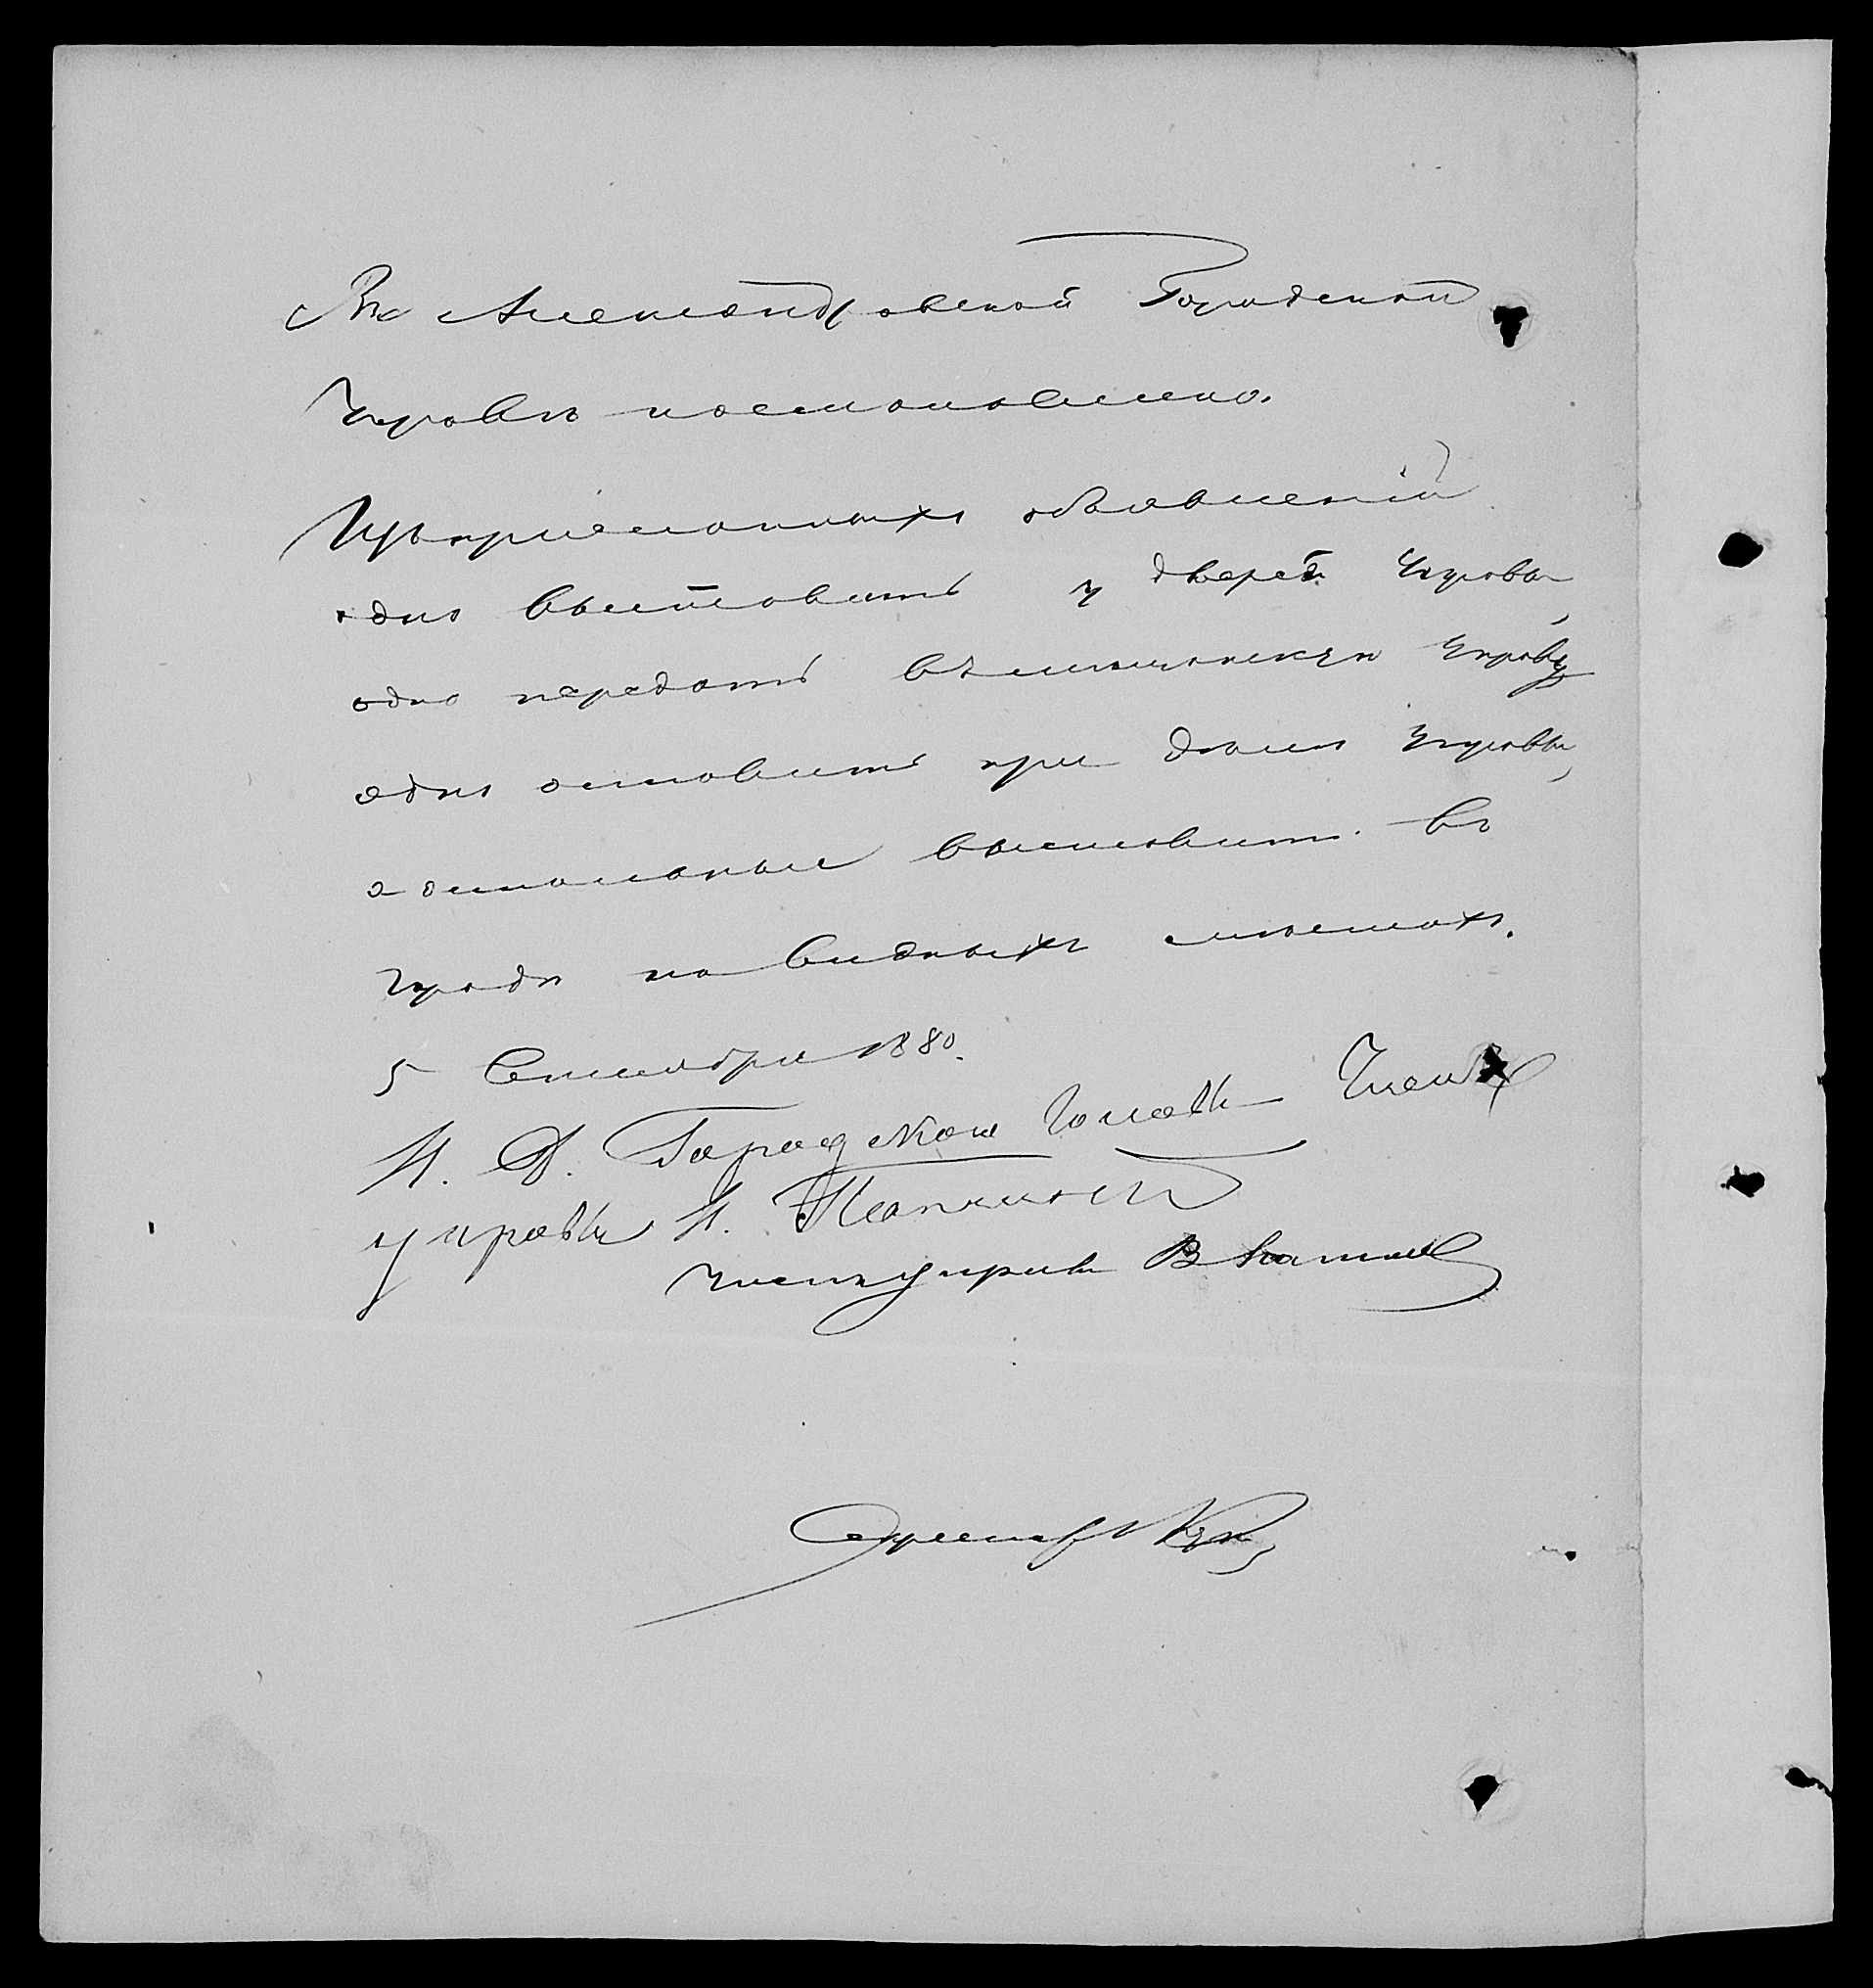 Въ Александровской Городской
Управѣ постановлено.
Изъ присланныхъ объявленій
одно выставить у дверей Управы,
одно передать въ мѣщанскую Управу
одно оставить при дѣлѣ Управы,
а остальные выставить въ
городѣ на видныхъ мѣстахъ.
5 Сентября 1880.
И. Д. Городскаго Головы Членъ
управы И.
Членъ управы В